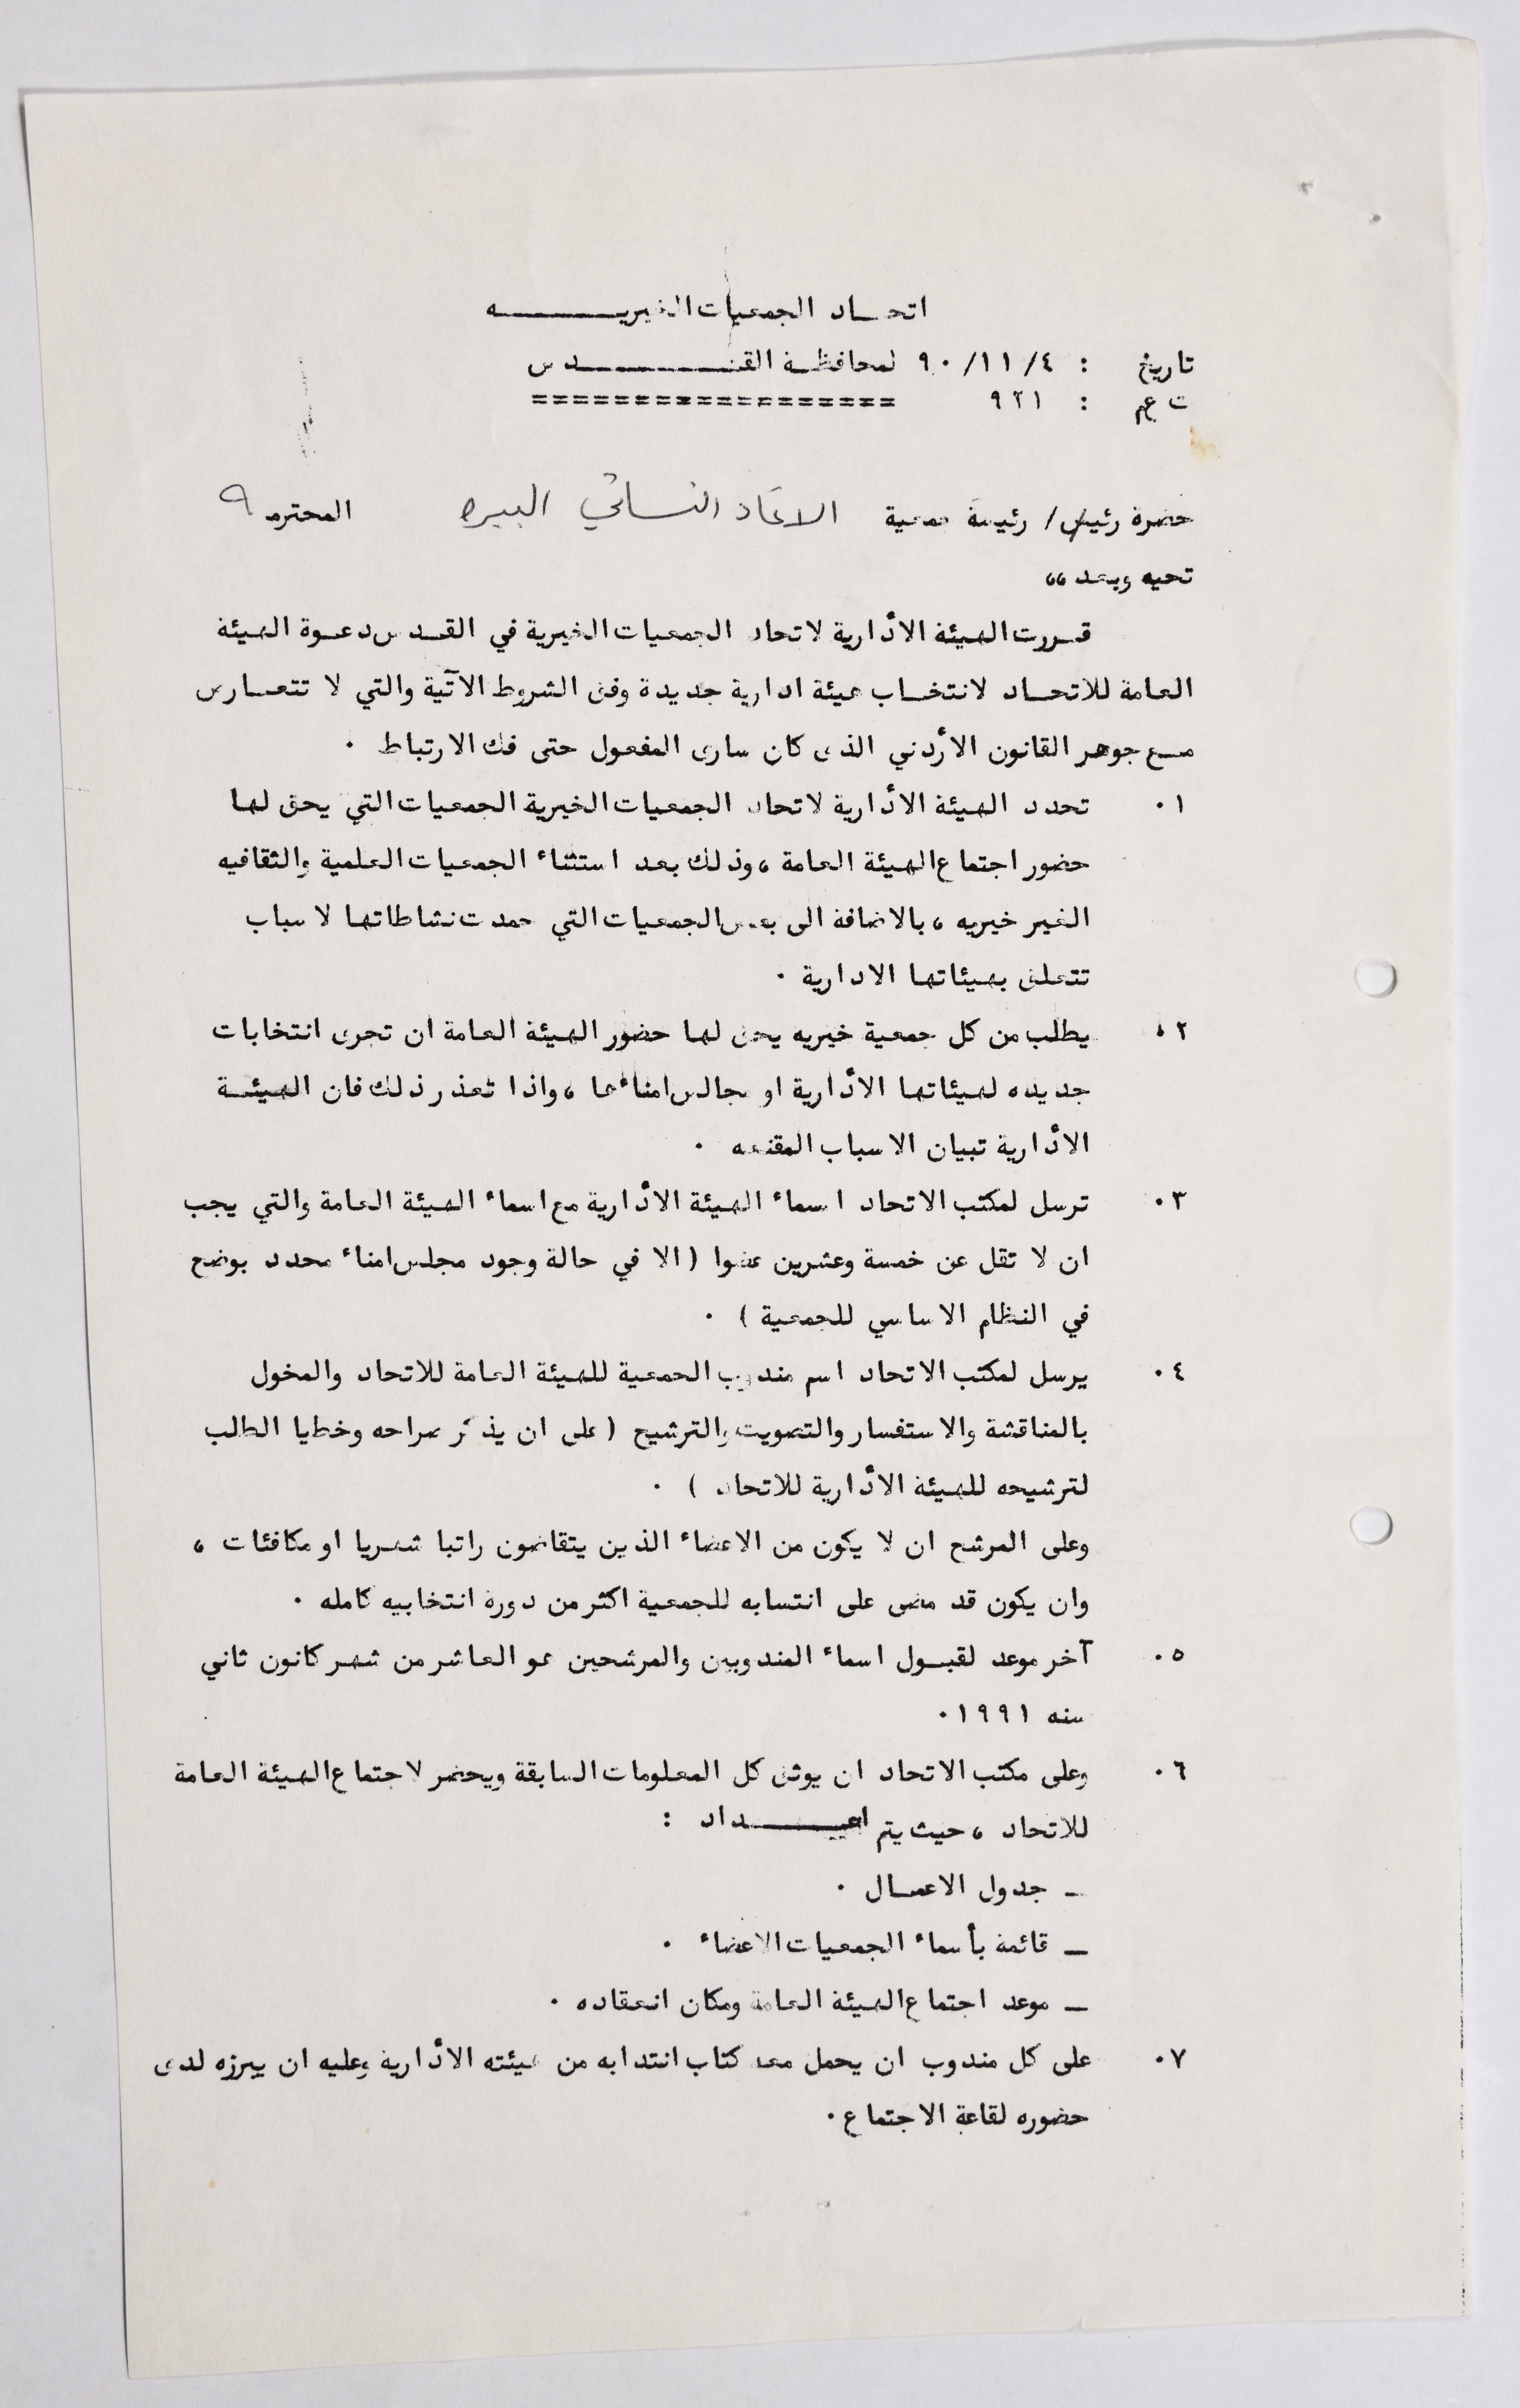 اتحـاد الجمعيات الخيريـــــــه
تاريخ : ٩٠/١١/٤ لمحافظـة القـــــــدس
ت عم : ٩٢١ ==================
حضرة رئيس/ رئيسة جمعية الاتحاد النسائي البيره المحترمة
تحيه وبعد ،،
قــررت الهيئة الأدارية لاتحاد الجمعيات الخيرية في القــدس دعــوة الهيئة
العامة للاتحــاد لانتخــاب هيئة ادارية جديدة وفق الشروط الآتية والتي لا تتعــارض
مــع جوهر القانون الأردني الذى كان سارى المفعول حتى فك الارتباط .
٠١ تحدد الهيئة الأدارية لاتحاد الجمعيات الخيرية الجمعيات التي يحق لها
حضور اجتماع الهيئة العامة ، وذلك بعد استثناء الجمعيات العلمية والثقافيه
الغير خيريه ، بالاضافة الى بعض الجمعيات التي جمدت نشاطاتها لاسباب
تتعلق بهيئاتها الادارية .
٠٢ يطلب من كل جمعية خيريه يحق لها حضور الهيئة العامة ان تجرى انتخابات
جديده لهيئاتها الأدارية او مجالس امنائها ، واذا تعذر ذلك فان الهيئــة
الأدارية تبيان الاسباب المقنعه .
٠٣ ترسل لمكتب الاتحاد اسماء الهيئة الأدارية مع اسماء الهيئة العامة والتي يجب
ان لا تقل عن خمسة وعشرين عضوا ( الا في حالة وجود مجلس امناء محدد بوضع
في النظام الاساسي للجمعية ) .
٠٤ يرسل لمكتب الاتحاد اسم مندوب الجمعية للهيئة العامة للاتحاد والمخول
بالمناقشة والاستفسار والتصويت والترشيح ( على ان يذكر صراحه وخطيا الطلب
لترشيحه للهيئة الأدارية للاتحاد ) .
وعلى المرشح ان لا يكون من الاعضاء الذين يتقاضون راتبا شهريا او مكافئات ،
وان يكون قد مضى على انتسابه للجمعية اكثر من دورة انتخابيه كامله .
٠٥ آخر موعد لقبــول اسماء المندوبين والمرشحين هو العاشر من شهر كانون ثاني
سنه ١٩٩١ ٠
٠٦ وعلى مكتب الاتحاد ان يوثق كل المعلومات السابقة ويحضر لاجتماع الهيئة العامة
للاتحاد ، حيث يتم اعـــــداد :
ـ جدول الاعمــال .
ـ قائمة بأسماء الجمعيات الاعضاء .
ـ موعد اجتماع الهيئة العامة ومكان انعقاده .
٠٧ على كل مندوب ان يحمل معه كتاب انتدابه من هيئته الأدارية وعليه ان يبرزه لدى
حضوره لقاعة الاجتماع .